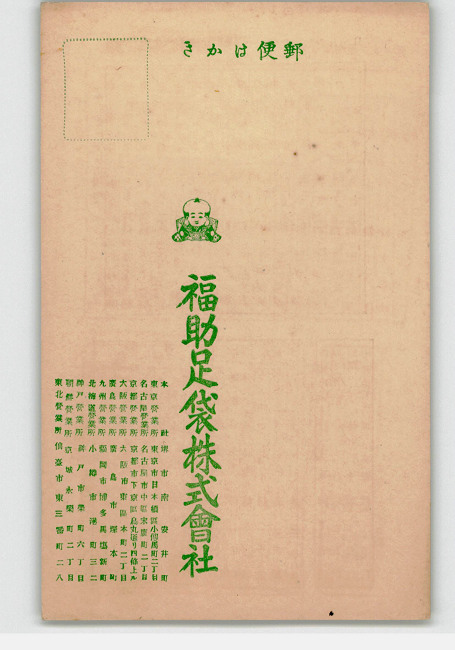 郵便はかき
福助足袋株式會社
本社 堺市南安井町
東京營業所 東京市日本橋區小傳馬町二丁目
名古屋營業所 名古屋市中區末廣町二丁目
京都營業所 京都市下京區烏丸通り四條上ル
大阪營業所 大阪市東區本町二丁目
廣島營業所 廣島市 本町
九州營業所 福岡市博多馬場新町
北海道營業所 小樽市 町三二
神戸營業所 神戸市榮町六丁目
朝鮮營業所 京城永樂町二丁目
東北營業所 仙臺市東三番町二八